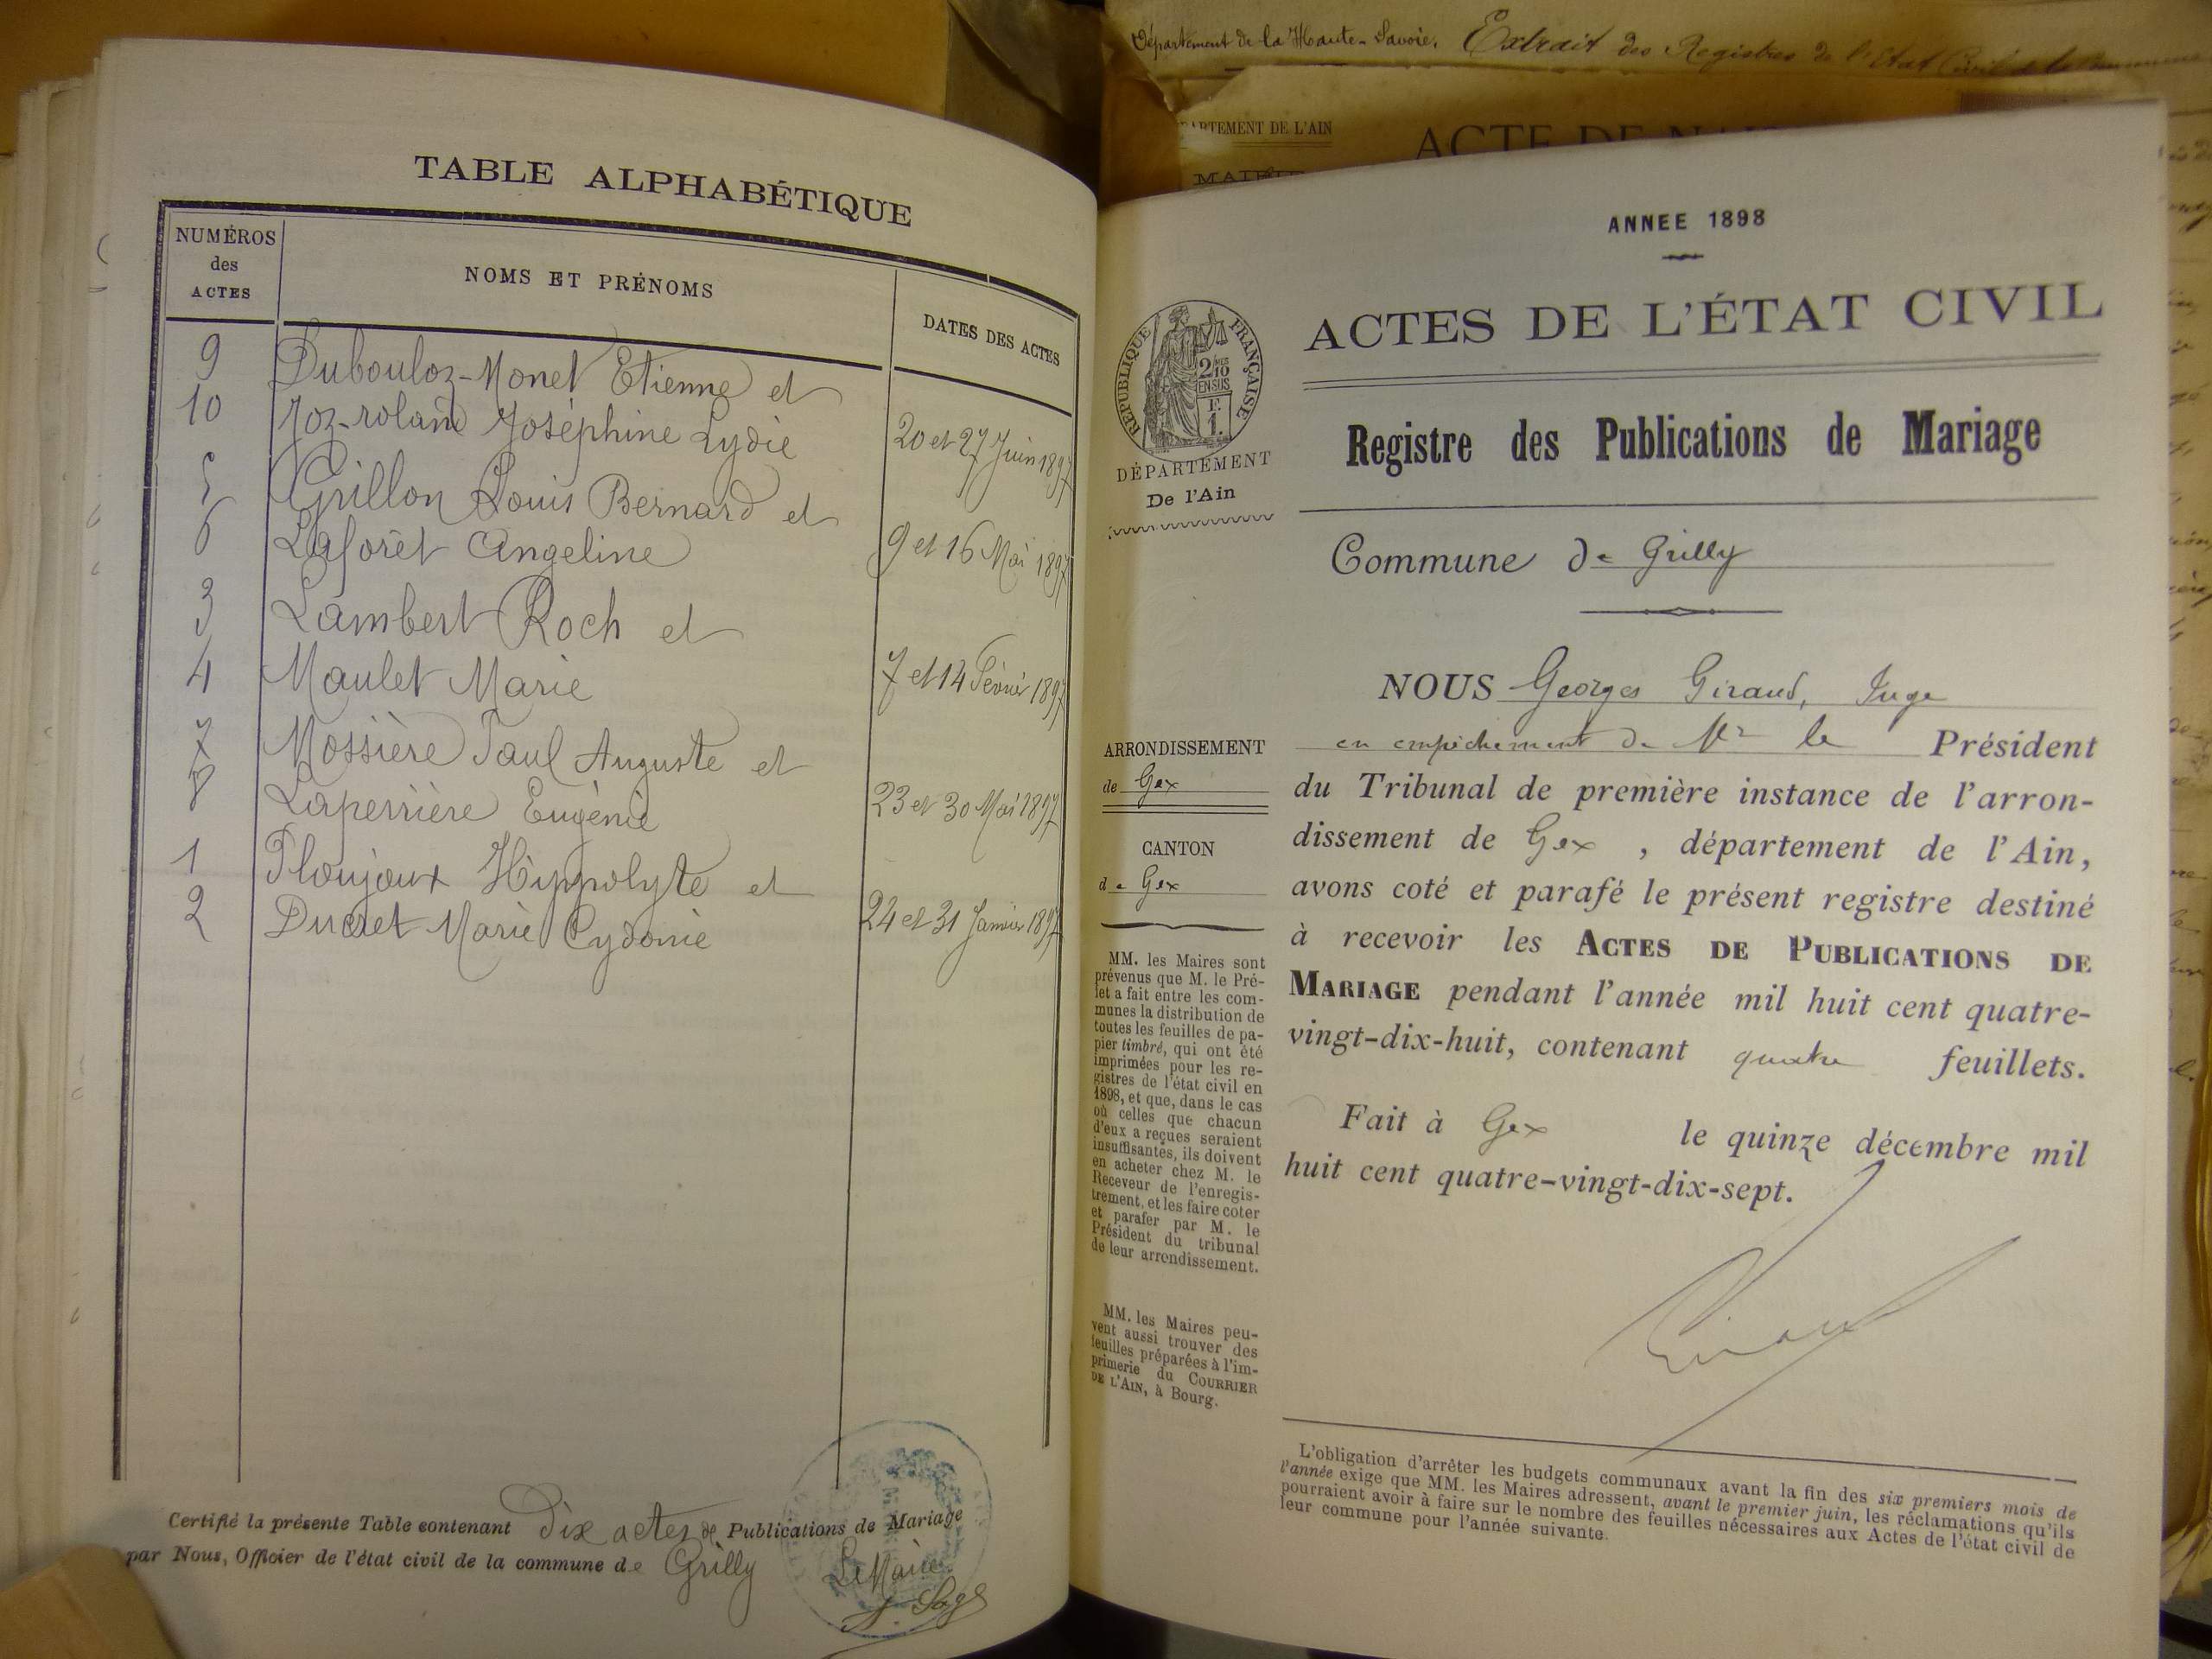 Département de la Haute-Savoie. Extrait des Registres de l'Etat Civil de la
DÉPARTEMENT DE L'AIN
ACTE DE
MAIRIE
TABLE ALPHABÉTIQUE
NUMÉROS
des
ACTES
NOMS ET PRÉNOMS
DATES DES ACTES
9 Dubouloz-Monet Etienne et
10 Joz-roland Joséphine Lydie 20 et 27 Juin 1897
5 Grillon Louis Bernard et
6 Laforêt Angeline 9 et 16 Mai 1897
3 Lambert Roch et
4 Maulet Marie 7 et 14 Février 1897
7 Mossière Paul Auguste et
8 Laperrière Eugénie 23 et 30 Mai 1897
1 Ploujoux Hippolyte et
2 Ducret Marie Cydonie 24 et 31 Janvier 1897
Certifié la présente Table contenant Dix actes de Publications de Mariage
par Nous, Officier de l'état civil de la commune de Grilly Le Maire
ANNEE 1898
ACTES DE L'ÉTAT CIVIL
Registre des Publications de Mariage
RÉPUBLIQUE FRANÇAISE
2/10
EN SUS
F.
1.
DÉPARTEMENT
De l'Ain
Commune de Grilly
ARRONDISSEMENT
de Gex
CANTON
de Gex
MM. les Maires sont
prévenus que M. le Pré-
fet a fait entre les com-
munes la distribution de
toutes les feuilles de pa-
pier timbré, qui ont été
imprimées pour les re-
gistres de l'état civil en
1898, et que, dans le cas
où celles que chacun
d'eux a reçues seraient
insuffisantes, ils doivent
en acheter chez M. le
Receveur de l'enregis-
trement, et les faire coter
et parafer par M. le
Président du tribunal
de leur arrondissement.
MM. les Maires peu-
vent aussi trouver des
feuilles préparées à l'im-
primerie du COURRIER
DE L'AIN, à Bourg.
NOUS Georges Giraud, Juge
en empêchement de Mr le Président
du Tribunal de première instance de l'arron-
dissement de Gex , département de l'Ain,
avons coté et parafé le présent registre destiné
à recevoir les ACTES DE PUBLICATIONS DE
MARIAGE pendant l'année mil huit cent quatre-
vingt-dix-huit, contenant quatre feuillets.
Fait à Gex le quinze décembre mil
huit cent quatre-vingt-dix-sept.
L'obligation d'arrêter les budgets communaux avant la fin des six premiers mois de
l'année exige que MM. les Maires adressent, avant le premier juin, les réclamations qu'ils
pourraient avoir à faire sur le nombre des feuilles nécessaires aux Actes de l'état civil de
leur commune pour l'année suivante.